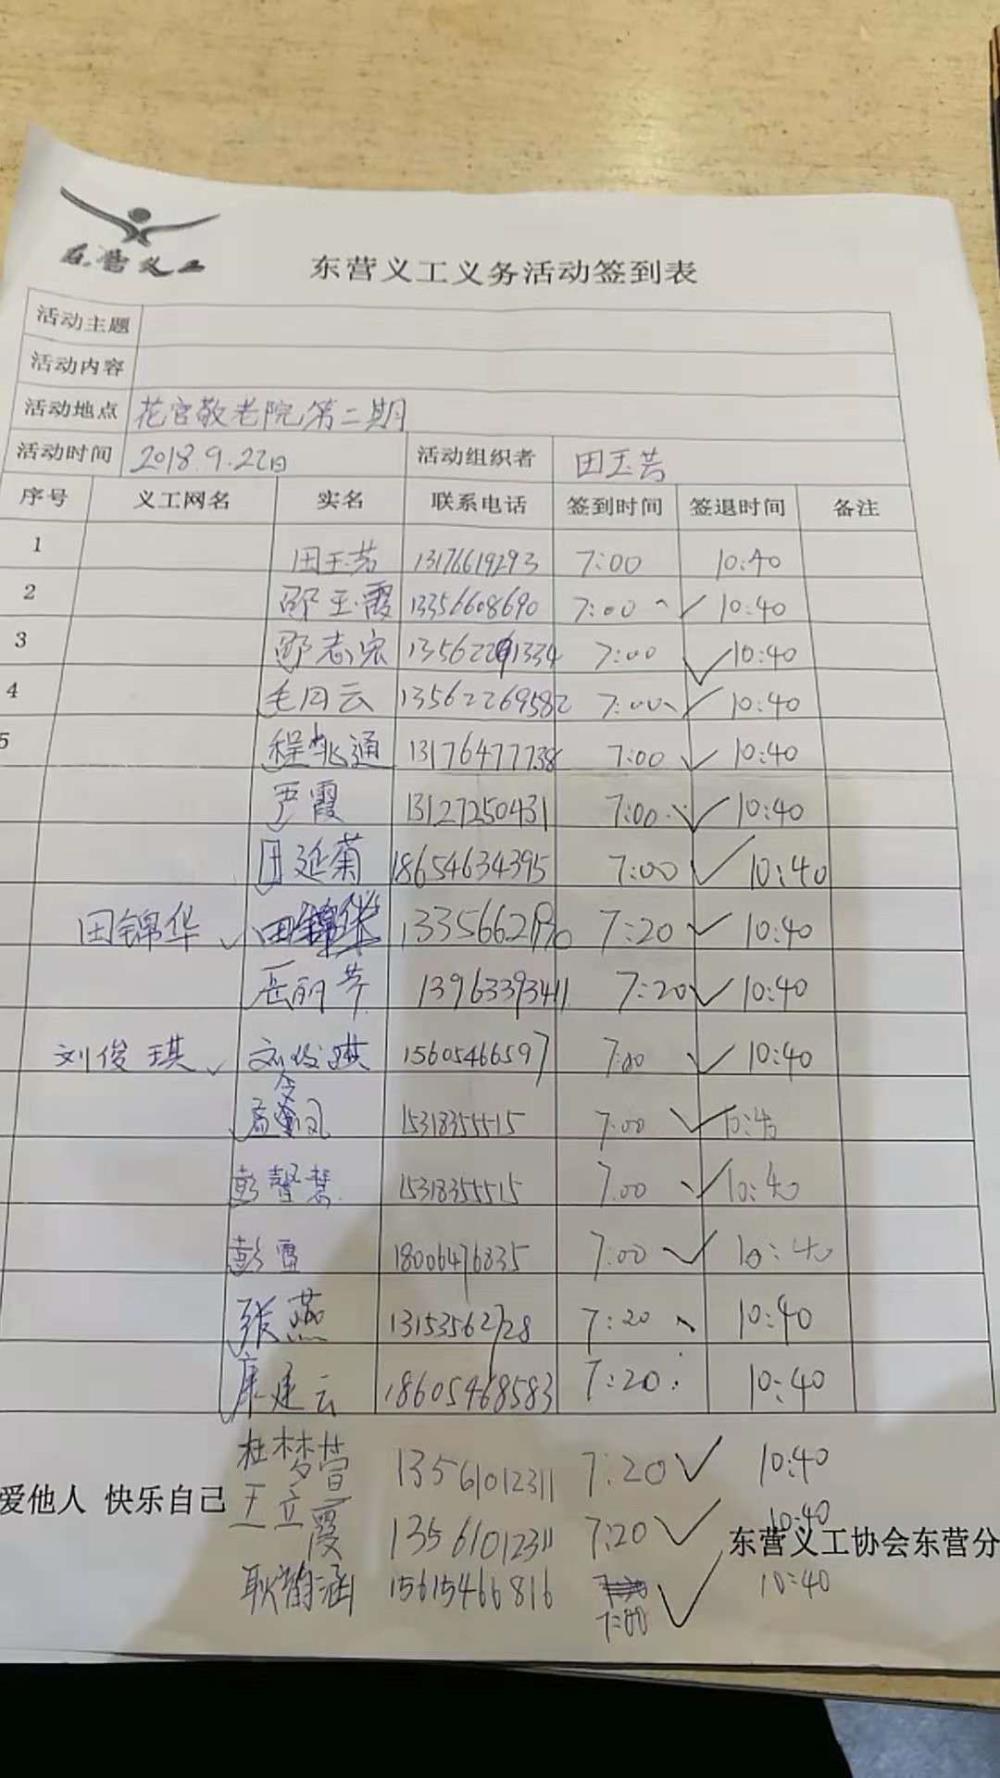 东营义工
东营义工义务活动签到表
活动主题
活动内容
活动地点 花官敬老院第二期
活动时间 2018.9.22日 活动组织者 田玉芳
序号 义工网名 实名 联系电话 签到时间 签退时间 备注
1 田玉芳 13176619293 7:00 10:40
2 邵玉霞 13356608690 7:00 10:40
3 邵志宏 7:00 10:40
4 毛月云 13562269582 7:00 10:40
5 程兆通 13176477738 7:00 10:40
严霞 13127250431 7:00 10:40
田延菊 18654634395 7:00 10:40
田锦华 田锦华 7:20 10:40
岳丽芳 13963393411 7:20 10:40
刘俊琪 刘俊琪 15605466597 7:00 10:40
15318355515 7:00 10:40
彭馨慧 15318355515 7:00 10:40
彭雷 18006476335 7:00 10:40
张燕 13153562728 7:20 10:40
康建云 18605468583 7:20 10:40
杜梦萱 13561012311 7:20 10:40
爱他人 快乐自己
王立霞 13561012311 7:20 10:40
东营义工协会东营分
耿韵涵 15615466816 7:00 10:40